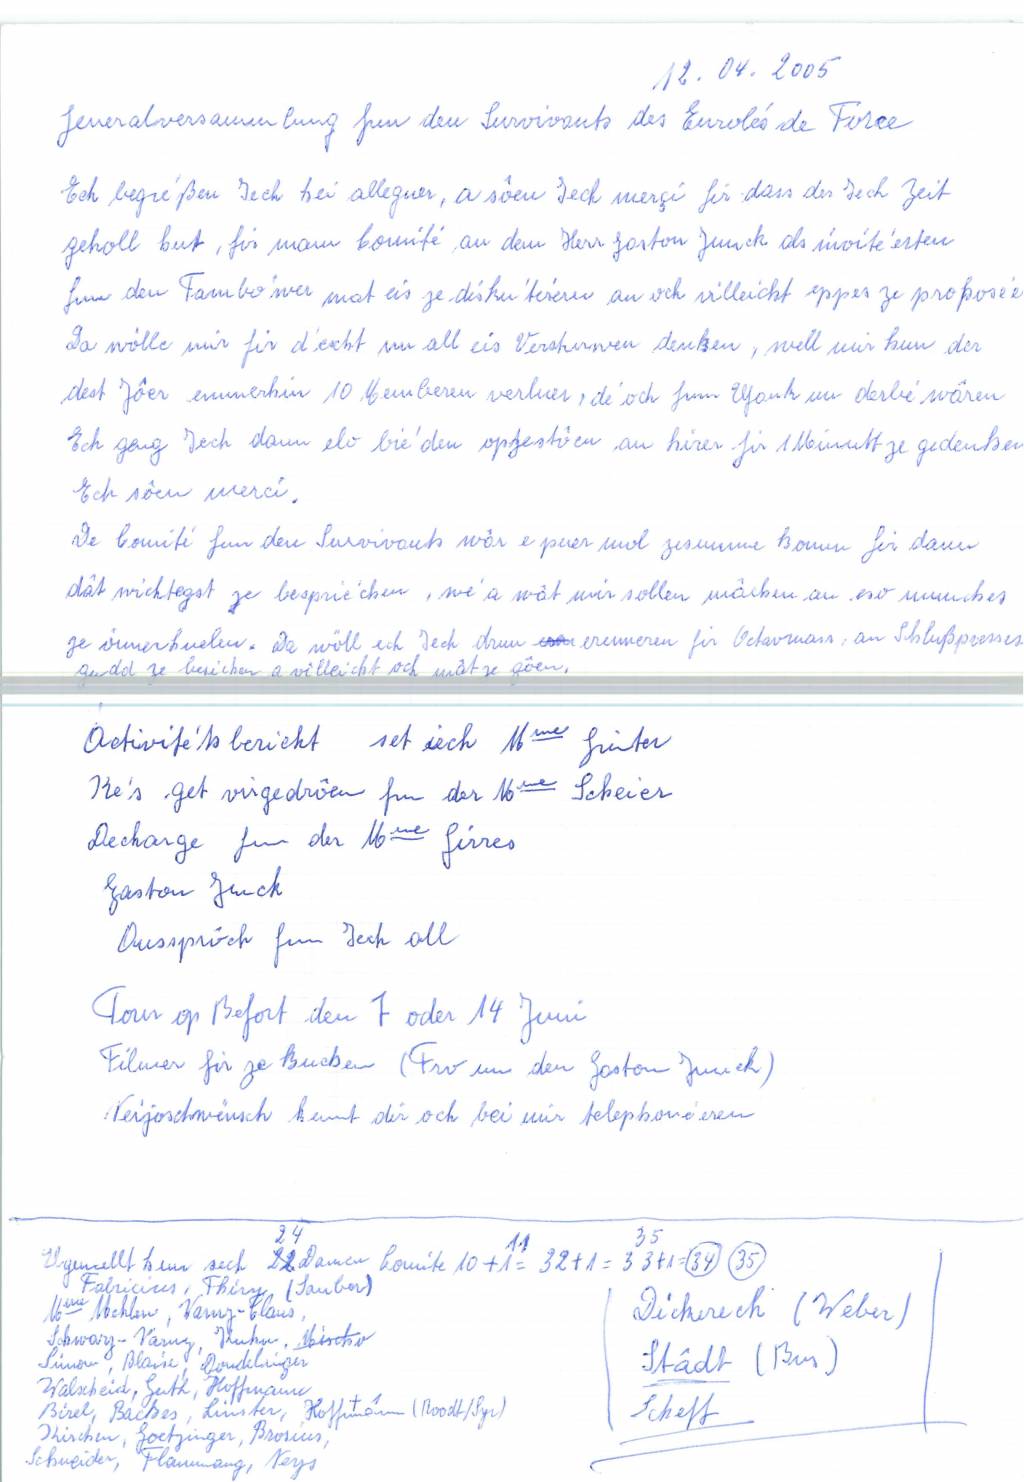 12. 04. 2005
Generalversammlung fun den Survivants des Enrolés de Force
Ech begré'ßen Iech hei alleguer, a sôen Iech merçi fir dass der Iech Zeit
geholl hut, fir mam Comité an dem Herr Gaston Junck als invité'erten
fun den Tambo'wer mat eis ze diskuté'eren an och villeicht eppes ze proposé'e
Da wölle mir fir d'éischt un all eis Verstuerwen denken, well mir hun der
dest Jôer emmerhin 10 Memberen verluer, dé och fum Ufank un derbé wären
Ech géng Iech dann elo bié'den opzestôen an hirer fir 1 Minutt ze gedenken
Ech sôen merci.
De Comité fun den Survivants wår e puer mol zesumme komm fir dann
dåt wichtegst ze besprié'chen, wé a wåt mir sollen måchen an eso munches
ze ënnerhuelen. Da wöll ech Iech drun erënneren fir Octavmass, an Schlußprosess
gudd ze besichen a villeicht och måt ze gôen.
Activité'tsbericht set iech Mme Ginter
Ke's get virgedrôen fun der Mme Scheier
Decharge fun der Mme Girres
Gaston Junck
Aussprôch fun Iech all
Tour op Befort den 7 oder 14 Juni
Filmer fir ze kucken (Fro un den Gaston Junck)
Neijoschwënsch kennt dir och bei mir telephonéeren
24 11 35
Ugemellt hun sech 22 Damen Comite 10 + 1 = 32 + 1 = 33 + 1 = 34 35
Fabricius, Thiry (Sauber)
Mme Mehlen, Varny-Claus,
Schwarz-Varny,
Simon, Blaise, Dondelinger
Walscheid, Guth, Hoffmann
Birel, Backes, Linster, Hoffmann (Roodt/Syr)
Kirschen, Goetzinger, Brosius,
Schneider, Flammang, Neys
Dickerech (Weber)
Stådt (Bus)
Scheff